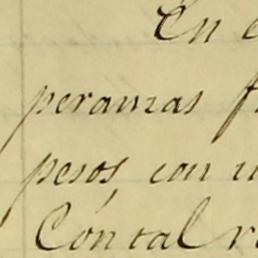 En
peranzas
pesos, con
Con tal